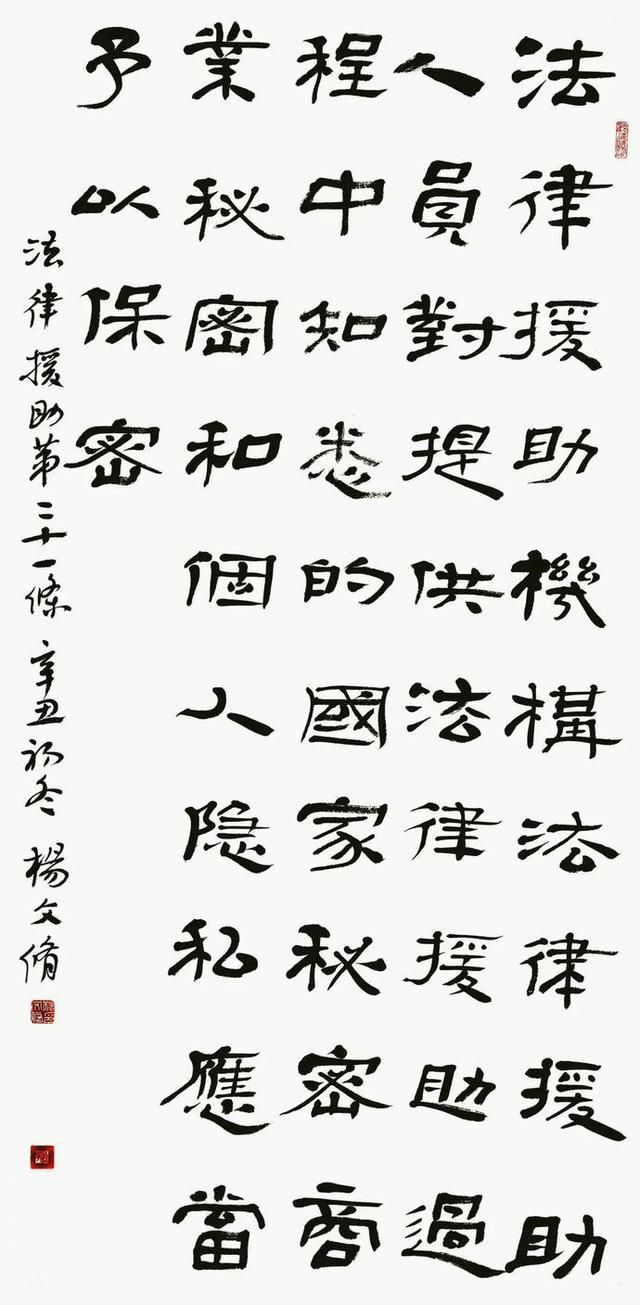 法律援助機構法律援助
人員對提供法律援助過
程中知悉的國家秘密商
業秘密和個人隐私應當
予以保密
法律援助第二十一條辛丑初冬楊文脩